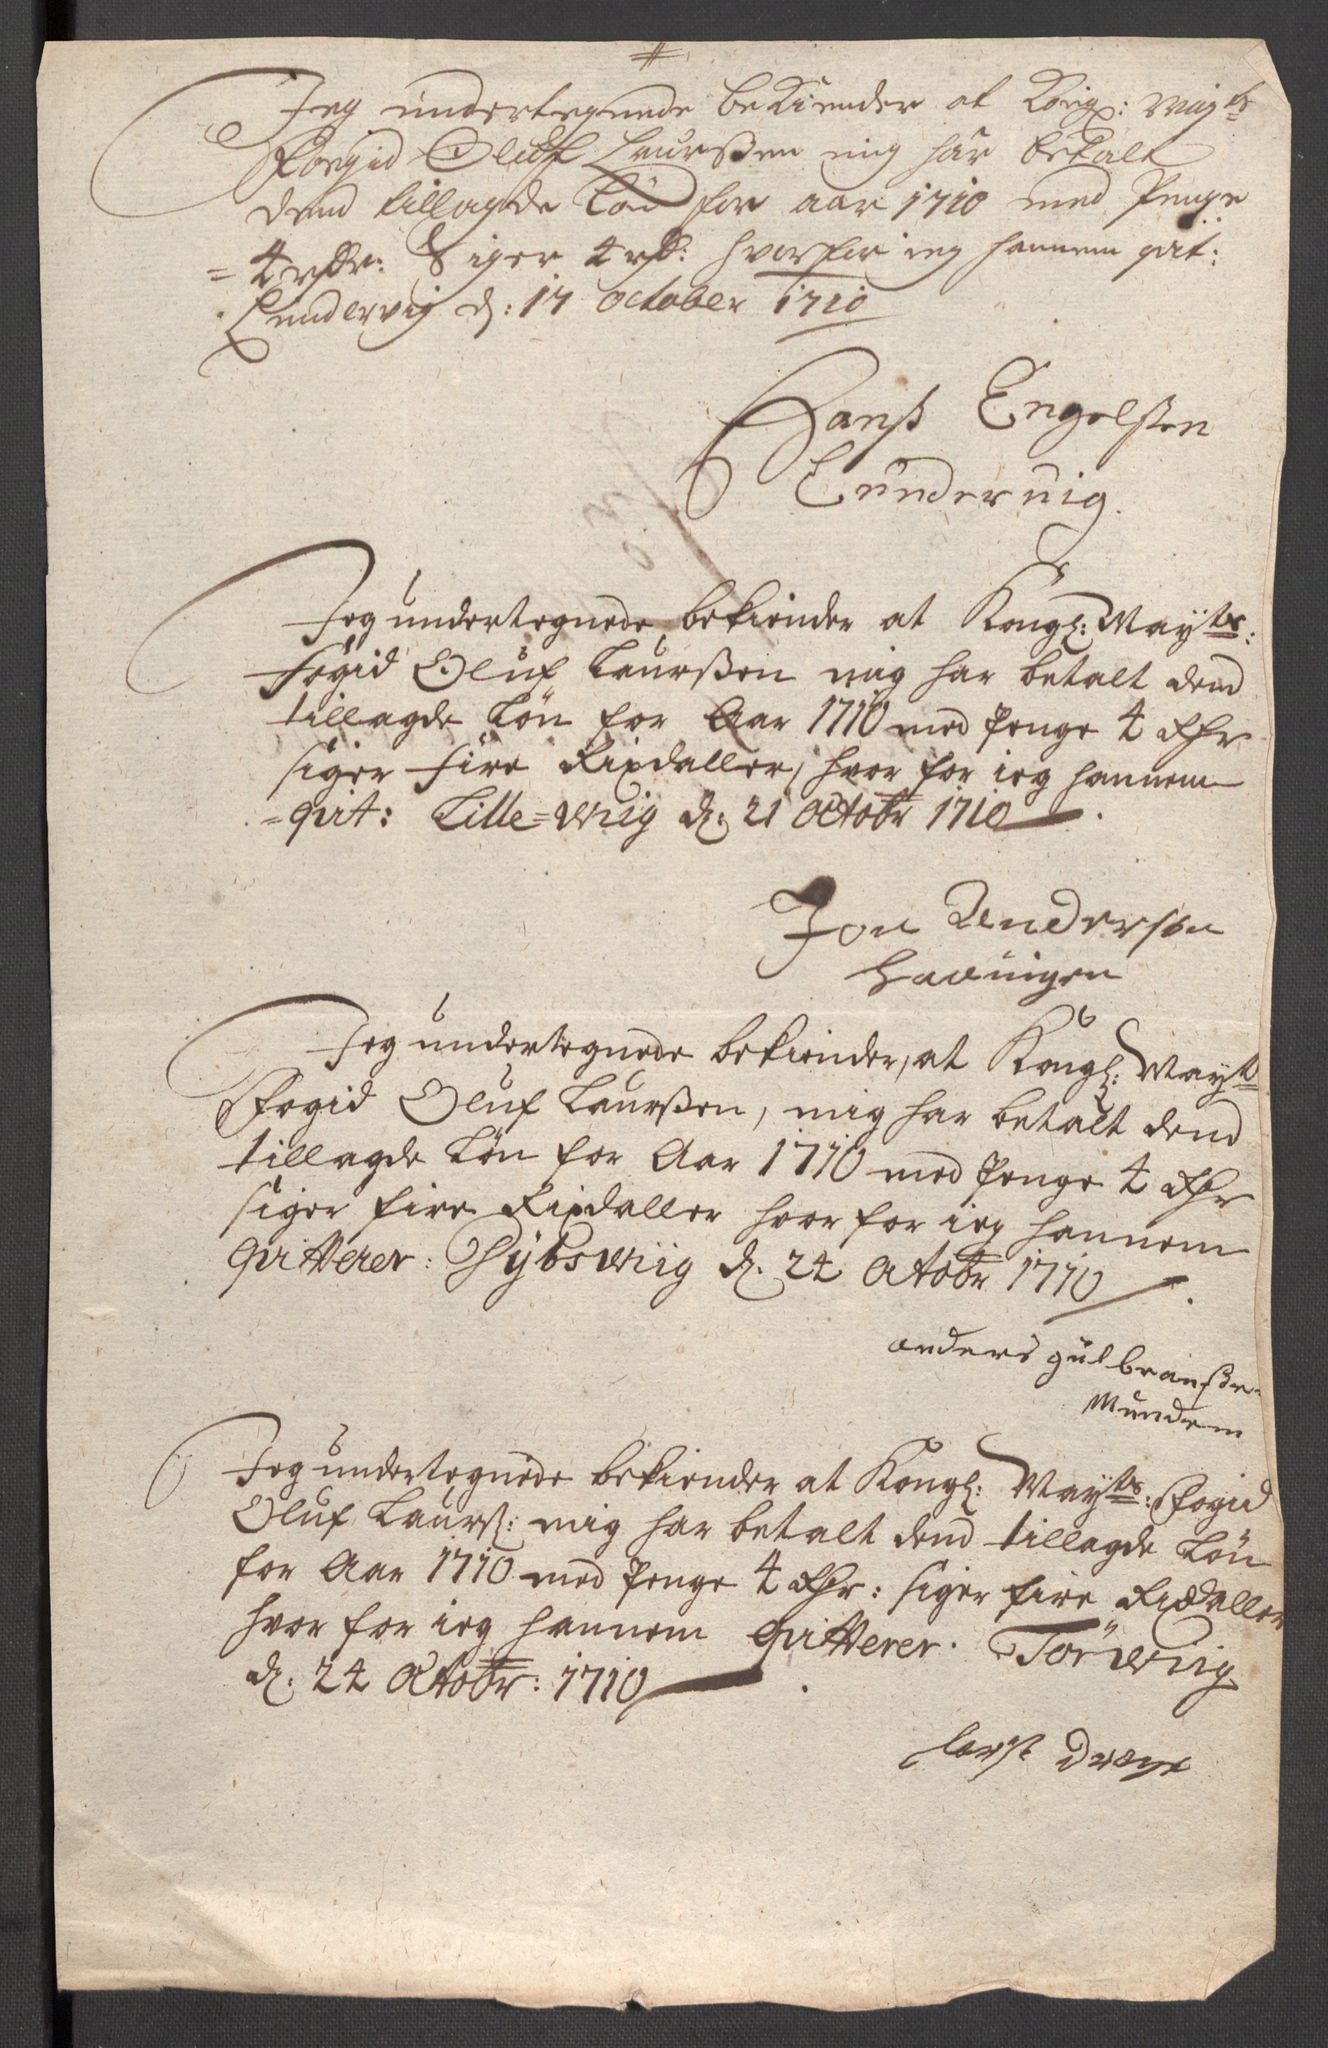 Jeg undertegnede bekiender at Kong: Mayts
Foegid Oluf Laurssen mig har betalt
dend tillagde Lön for aar 1710 med Penge
= 4 rdr: Siger 4 rd: hvorfor ieg hannem qvit:
Lundervig d: 17 October 1710
Hanss Engelssen
Lundervig
Jeg undertegnede bekiender at Kongl: Mayts:
fogid Oluf Laurssen mig har betalt dend
tillagde Lön for Aar 1710 med Penge 4 Rdr
siger fire Rixdaller, hvor for ieg hannem
= qvit: Lille=wiig d. 21 Octobr 1710
Jon Andersen
Jeg undertegnede bekiender, at Kongl: Mayts
Fogid Oluf Laurssen, mig har betalt dend
tillagde Lön for Aar 1710 med Penge 4 Rdr
siger fire Rixdaller hvor for ieg hannem
qvitterer: Sybswiig d. 24 Octobr 1710
anders gulbranssen
Mundem
Jeg undertegnede bekiender at Kongl: Mayts: Fogid
Oluf Laurs: mig har betalt dend tillagde Lön
for Aar 1710 med Penge 4 Rdr: siger fire Rixdaller
hvor for ieg hannem qvitterer. Törwiig
d. 24 Octobr: 1710